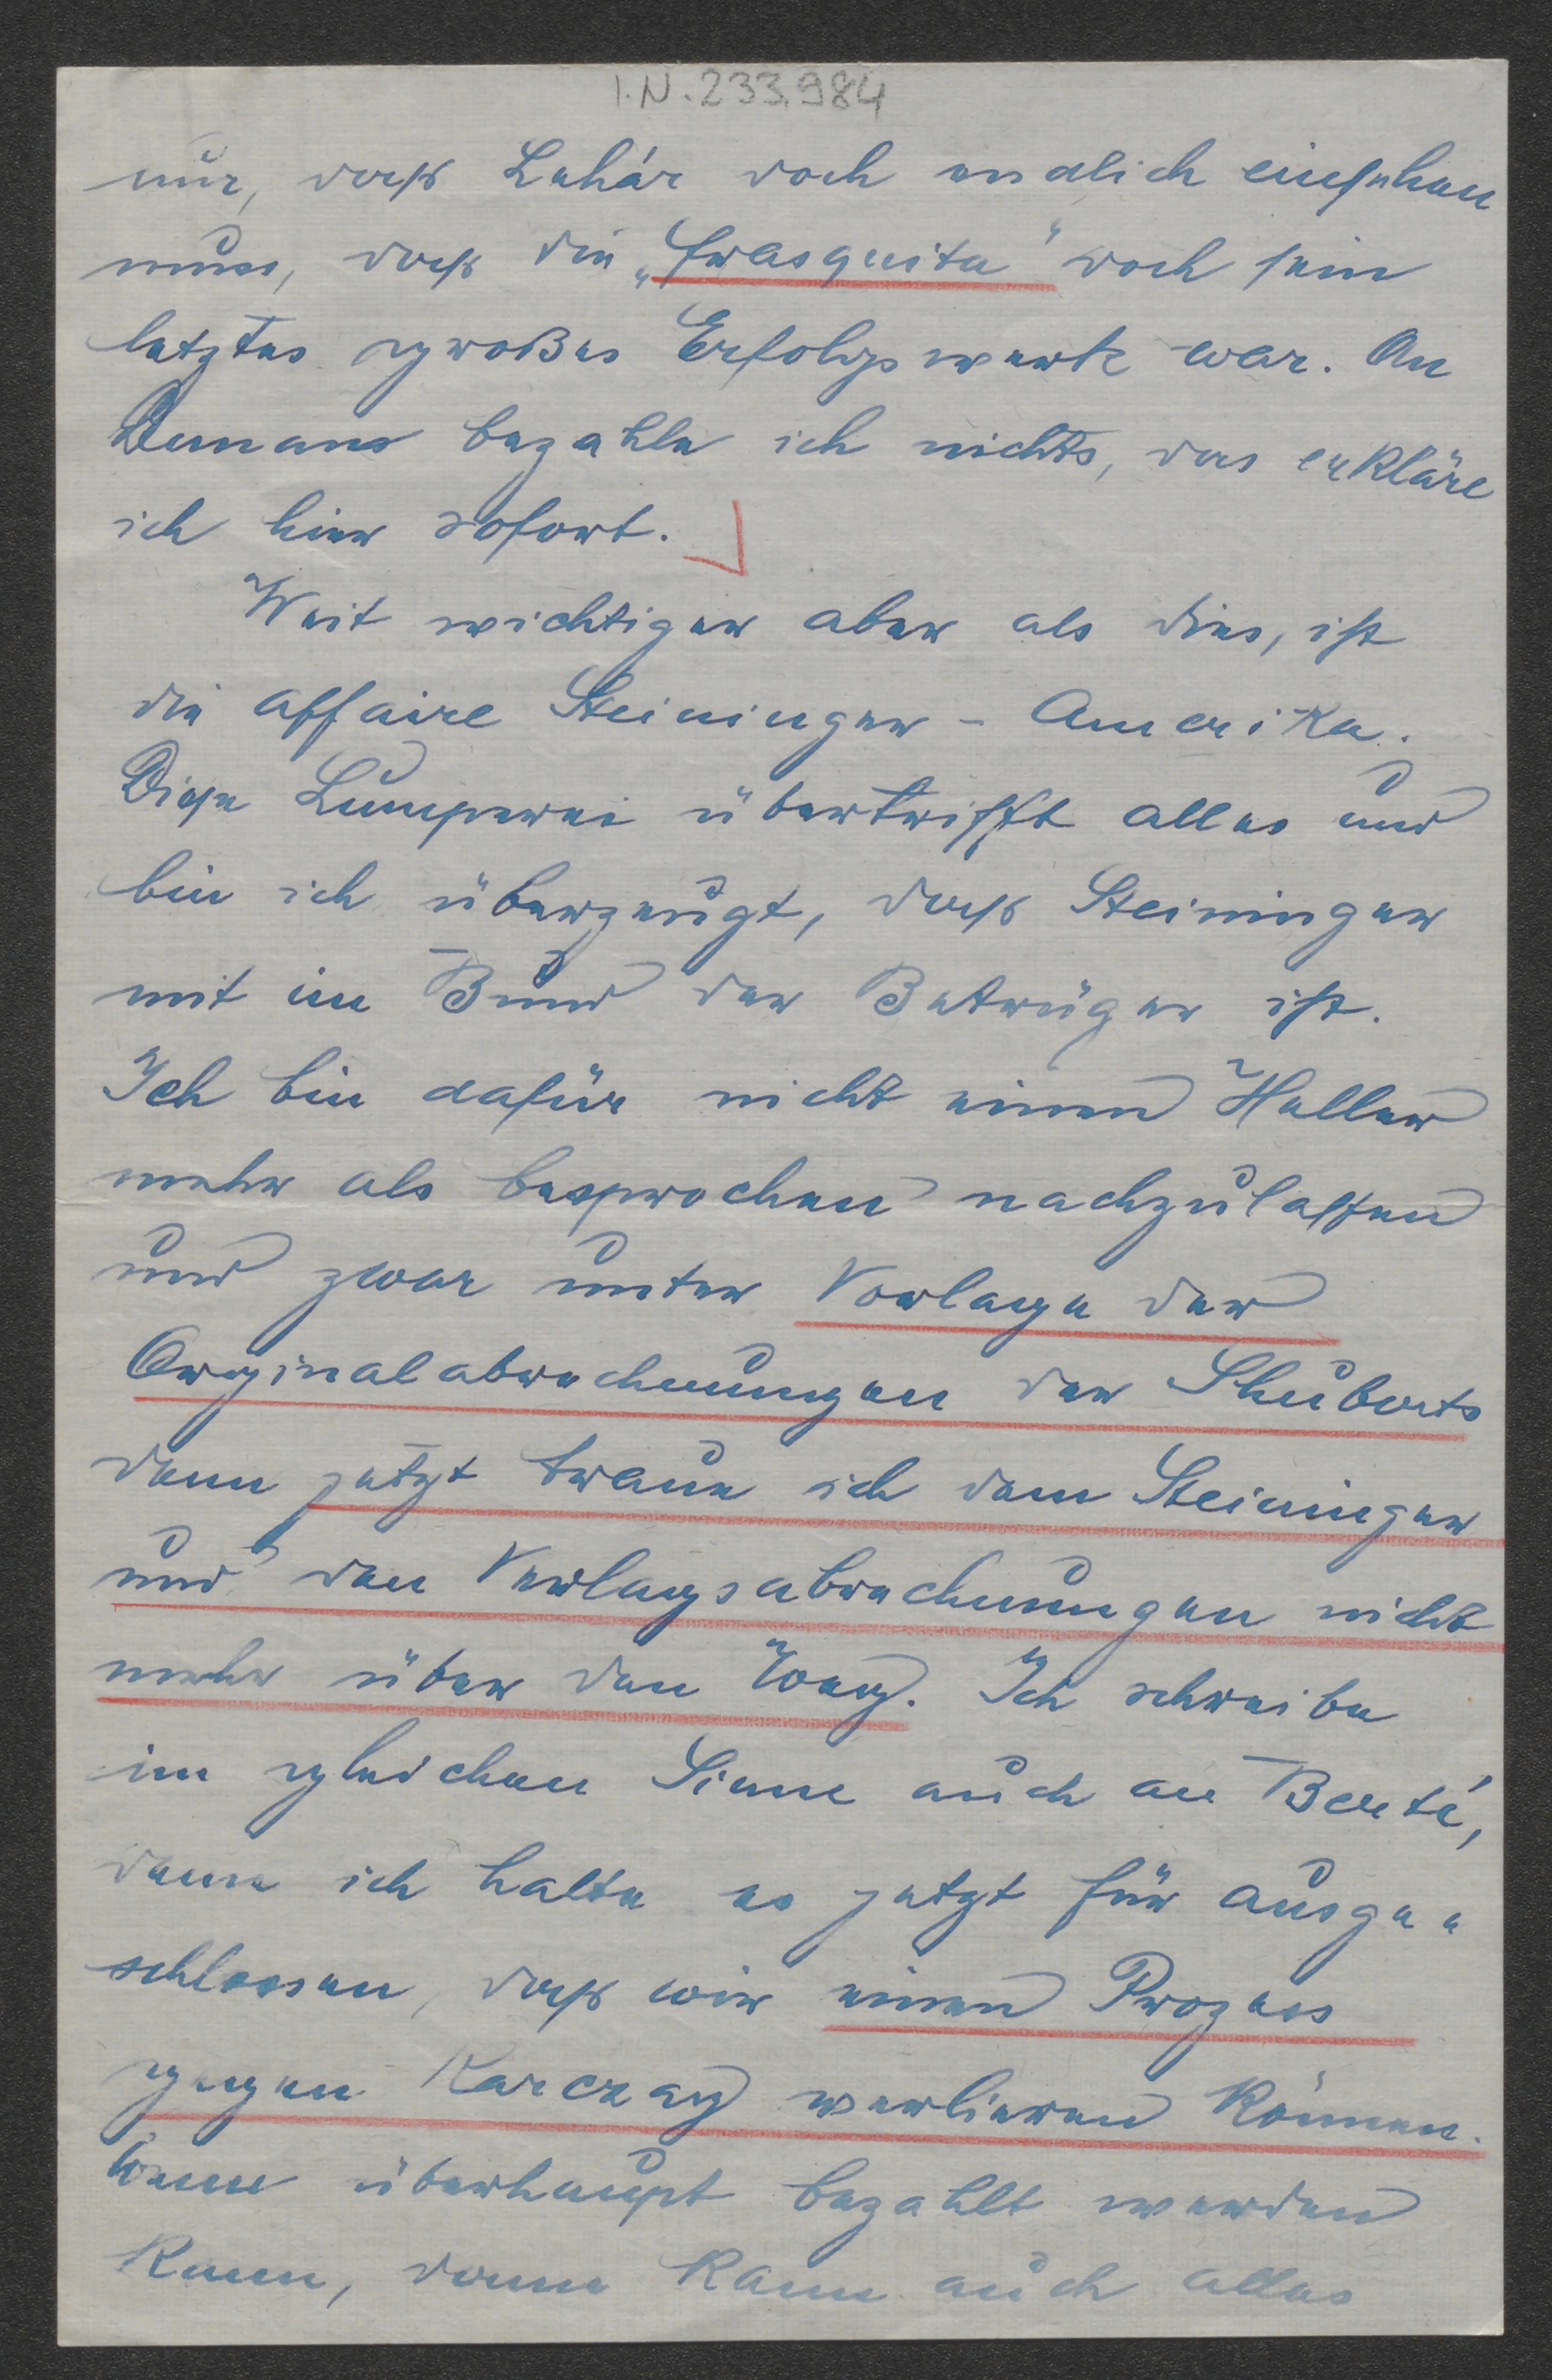 I.N. 233.984
nur, daß Lehár doch endlich einsehen
muss, daß die „Frasquita" doch sein
letztes großes Erfolgswerk war. An
Demans bezahle ich nichts, das erkläre
ich hier sofort.
Weit wichtiger aber als dies, ist
die Affaire Steininger - Amerika.
Diese Lumperei übertrifft alles und
bin ich überzeugt, daß Steininger
mit im Bund der Betrüger ist.
Ich bin dafür nicht einen Heller
mehr als besprochen nachzulassen
und zwar unter Vorlage der
Orginalabrechnungen der Shuberts
denn jetzt traue ich dem Steininger
und den Verlagsabrechnungen nicht
mehr über den Weg. Ich schreibe
im gleichen Sinne auch an Berté,
denn ich halte es jetzt für ausge"
schlossen, daß wir einen Prozess
gegen Karczag verlieren können.
Wenn überhaupt bezahlt werden
kann, dann kann auch alles